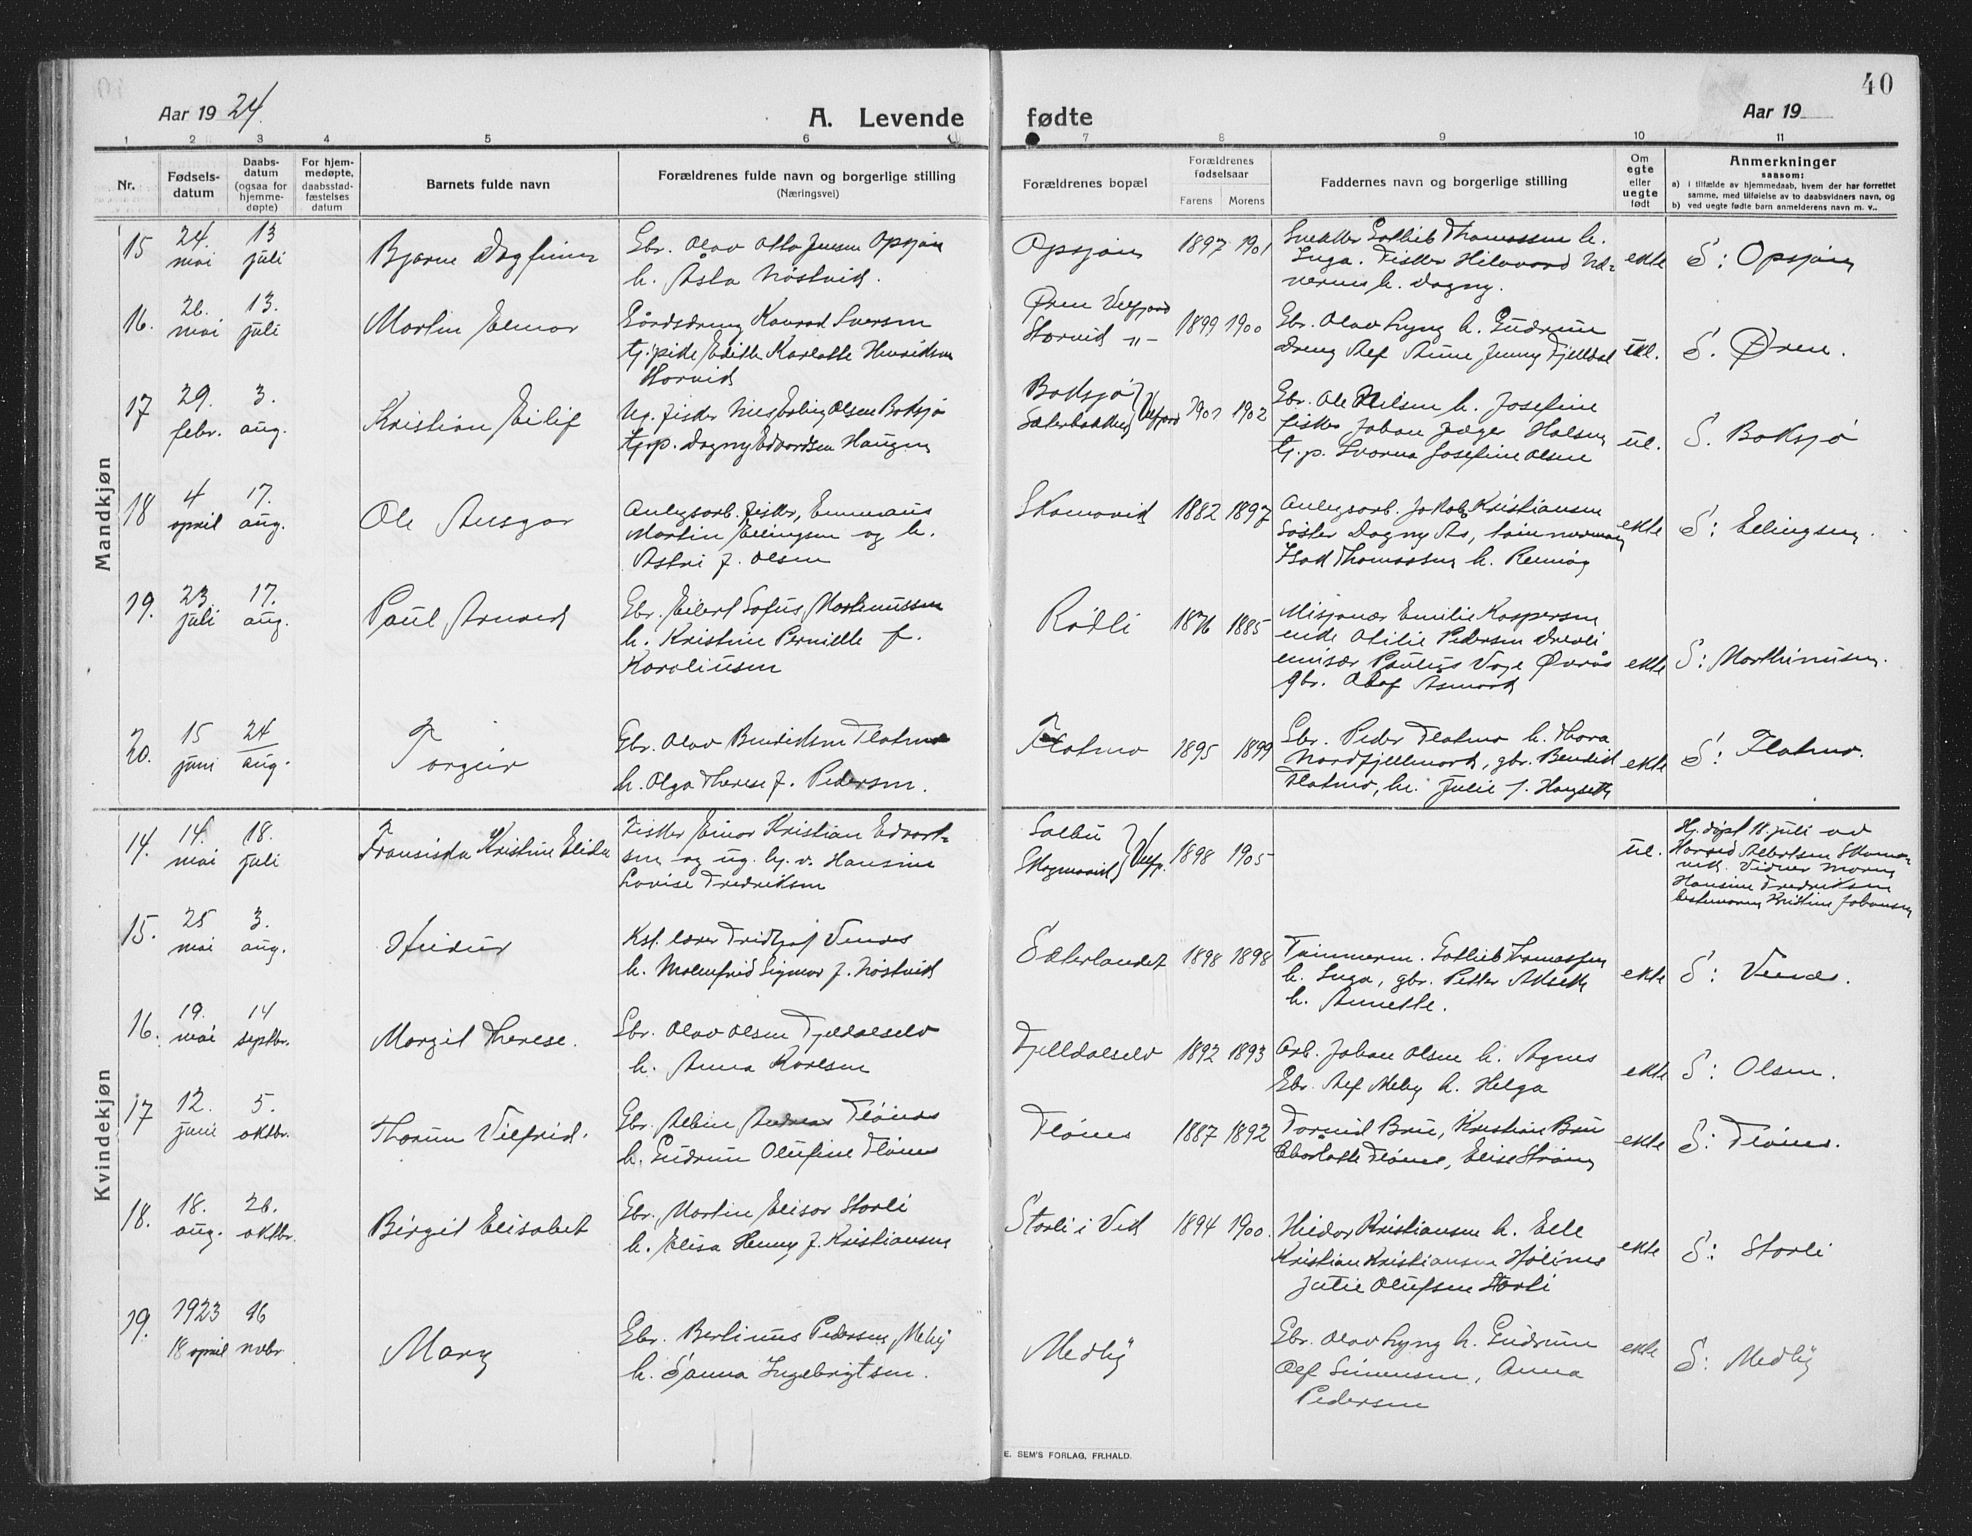 40
Aar 19 24.
A. Levende fødte
Aar 19
1 2 3 4 5 6 7 8 9 10 11
Nr.
Fødsels-
datum
Daabs-
datum
(ogsaa for
hjemme-
døpte)
For hjem-
medøpte,
daabsstad-
fæstelses
datum
Barnets fulde navn
Forældrenes fulde navn og borgerlige stilling
(Næringsvei)
Forældrenes bopæl
Forældrenes
fødselsaar
Farens Morens
Faddernes navn og borgerlige stilling
Om
egte
eller
uegte
født
Anmerkninger
saasom:
a) i tilfælde av hjemmedaab, hvem der har forrettet
samme, med tilføielse av to daabsvidners navn, og
b) ved uegte fødte barn anmelderens navn m. v..
Mandkjøn
15
24.
mai
13
juli
Bjarne Dagfinn
Gbr. Olav Otto Jensen Opsjøn
h. Åsta Nøstvik.
Opsjøen
1897 1901
Snekker Gotlieb Thomassen h.
Inga. Fisker Hilvard
h. Dagny.
ekte
S: Opsjøen
16.
26.
mai
13.
juli
Martin Elmar
Gårdsdreng Konrad Iversen
tj.pike Edith Karlotte Henriksen
Storvik
Øren Velfjord
Storvik -"-
1899 1900
Gbr. Olav Lyng h. Gudrun
dreng Alf Aune Jenny Fjelldal
uk.
S. Øren.
17
29.
febr.
3.
aug.
Kristian Eilif
Ug. fisker Nils Olsen Boksjø
tj.p. Dagny Edvardsen Haugen
Boksjø
Sæterbakken } Velfjord
1901 1902
Gbr. Ole Nilsen h. Josefine
fisker Johan Jæger Holsen
tj.p. Svanna Josefine Olsen
ue.
S. Boksjø
18
4
april
17.
aug.
Ole Ansgar
Anlegsarb. fisker, Emmaus
Martin Ellingsen og h.
Astri f. Olsen
Skomovik
1882 1897
Anlegsarb. Jakob Kristiansen
Søster Dagny As, tømmermann
Isak Thomassen h. Remøy
ekte
S: Ellingsen.
19.
23.
juli
17.
aug.
Paul Arnvid
Gbr. Eilert Sofus Martinussen
h. Kristine Pernille f.
Karoliussen
Rødli
1876 1885
Misjonær Emilie Kaspersen
enke Otilie Pedersen Drevli
emisær Paulus Vage Øvrås
gbr. Olaf Åsmark
ekte
S: Marthinusen.
20.
15
juni
24
aug.
Torgeir
Gbr. Olav Bendiksen Flatmo
h. Olga Therese f. Pedersen.
Flatmo
1895 1899
Gbr. Peder Flatmo h. Thora
Nordfjellmark, gbr. Bendik
Flatmo, h. Julie f. Høyseth
ekte
S: Flatmo.
Kvindekjøn
14.
14.
mai
18.
juli
Fransiska Kristine Elida
Fisker Einar Kristian Edvart-
sen og ug. hj.v. Hansine
Lovise Fredriksen
Salbu
Skogmovik } Velf.
1898 1905
ue.
Hj.døpt 18. juli av
Harald Albertsen Skomo-
vik. Vidner moren
Hansine Fredriksen
bestemoren Kristine Johansen
15.
25
mai
3.
aug.
Kst. lærer Fridtjof Venås
h. Malmfrid Sigmor f. Nøstvik
Sæterlandet
1898 1898
Tømmerm. Gotlieb Thomassen
h. Inga, gbr. Petter Akseth
h. Annette.
ekte
S: Venås.
16.
19.
mai
14
septbr.
Margit Therese.
Gbr. Olav Olsen Fjeldalselv
h. Anna Karlsen
Fjelldalselv
1892 1893
Arb. Johan Olsen h. Agnes
Gbr. Alf Meby h. Helga
ekte
S: Olsen.
17
12.
juni
5.
oktbr.
Thorun Vilfrid.
Gbr. Albin Andreas Flønes
h. Gudrun Olufine Flønes
Flønes
1887 1892
Torvid Bru, Kristian Bru
Charlotte Flønes, Elise Strøm
ekte
S: Flønes.
18.
18.
aug.
26.
oktbr.
Birgit Elisabet
Gbr. Martin Elisar Storli
h. Elisa Henny f. Kristiansen
Storli i Vik
1894 1900.
Hildor Kristiansen h. Elle
Kristian Kristiansen
Julie Olufsen Storli
ekte
S: Storli
19.
1923
18 april
16
novbr
Mary
Gbr. Bertinus Pedersen, Meby
h. Sanna Ingebrigtsen.
Medby
Gbr. Olav Lyng h. Gudrun
Alf Simensen, Anna
Pedersen
ekte
S: Medby
E. SEM'S FORLAG, FR.HALD.